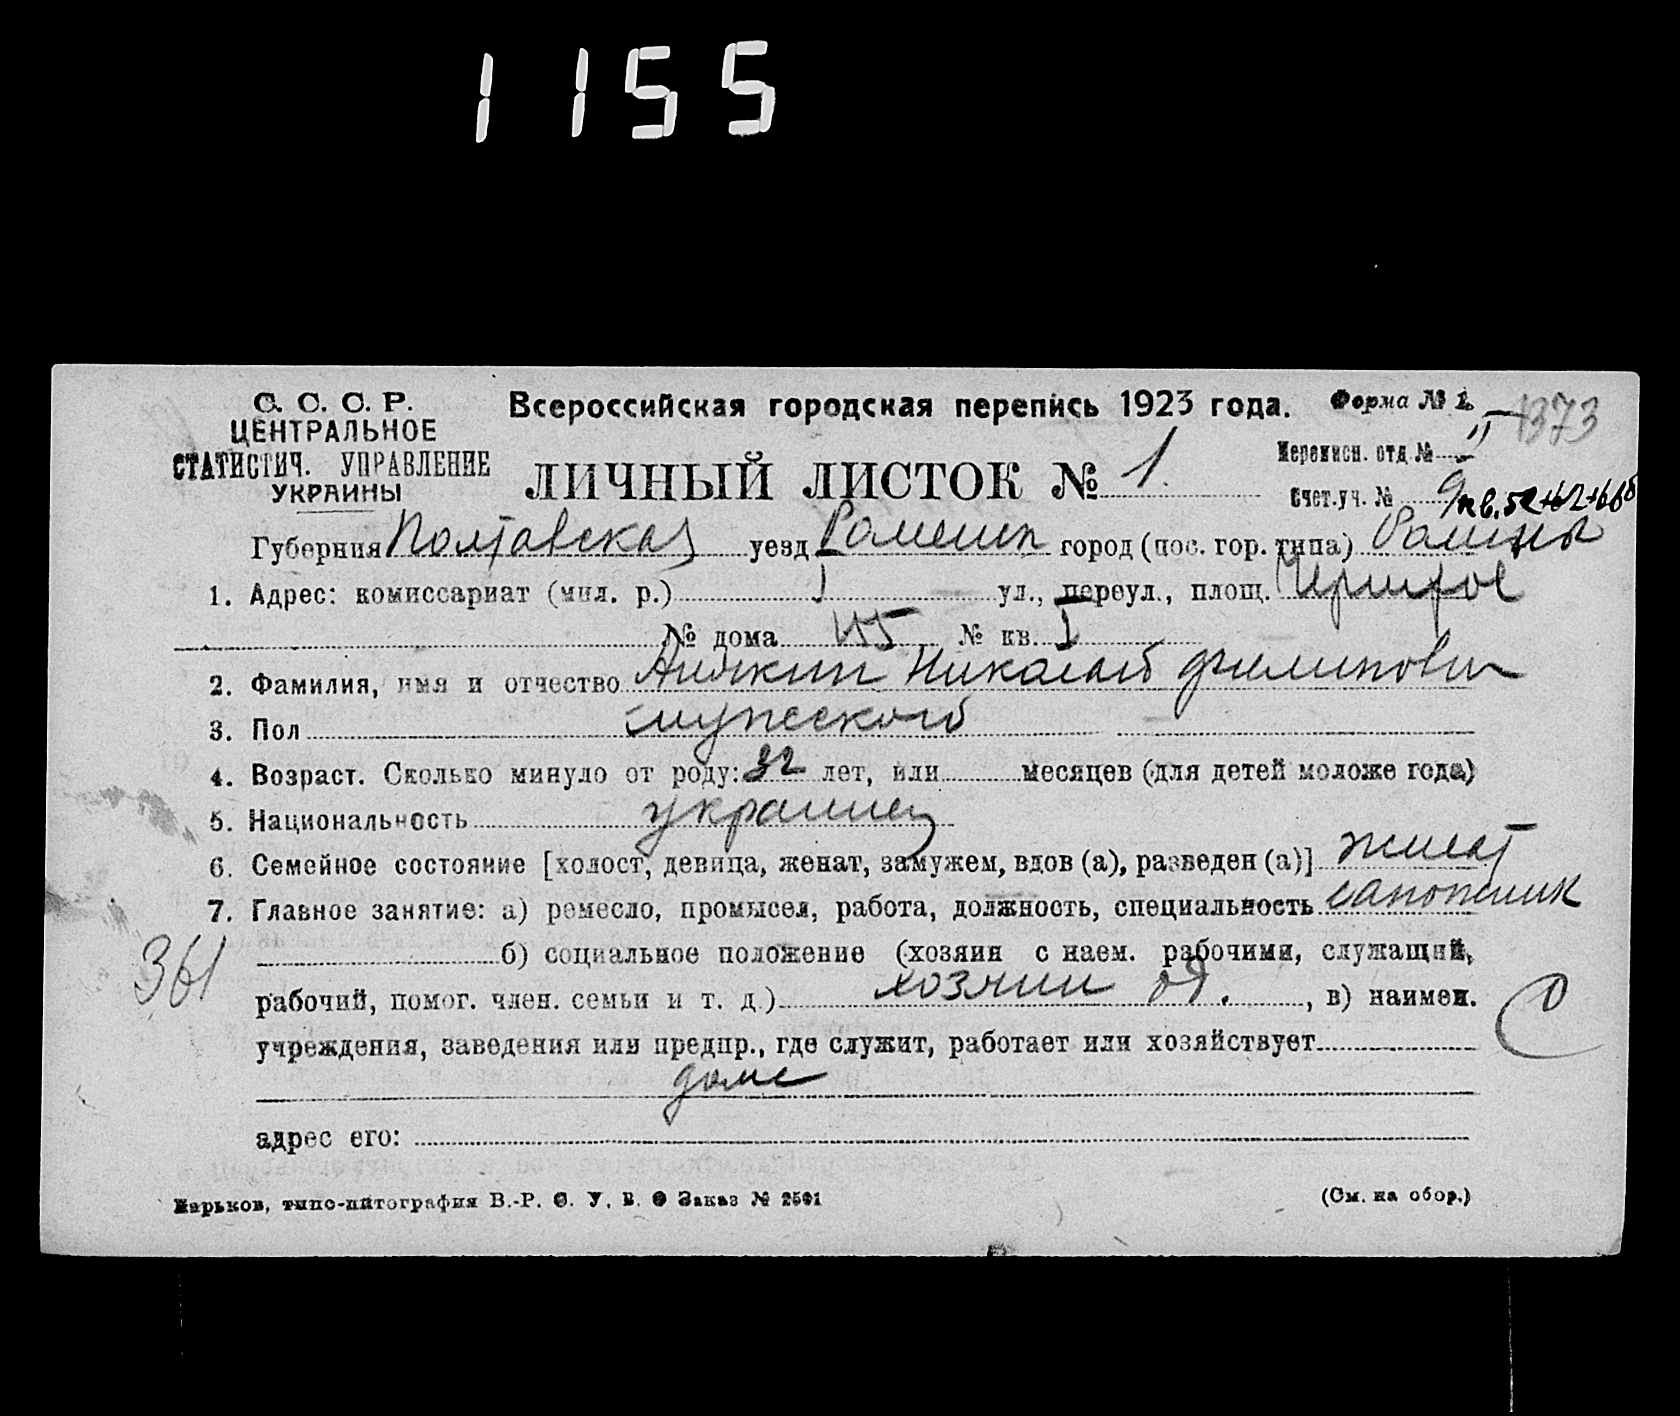 1155
С. С. С. Р.
ЦЕНТРАЛЬНОЕ
СТАТИСТИЧ. УПРАВЛЕНИЕ
УКРАИНЫ
Всероссийская городская перепись 1923 года.
Форма № 1.
1373
ЛИЧНЫЙ ЛИСТОК № 1.
Переписн. отд. № II
Счет. уч. № 9
Губерния Полтавская уезд Роменск город (пос. гор. типа) Ромны
1. Адрес: комиссариат (мил. р.) I ул., переул., площ.
№ дома № кв. I
2. Фамилия, имя и отчество Николай Филипович
3. Пол мужеской
4. Возраст. Сколько минуло от роду: 32 лет, или месяцев (для детей моложе года)
5. Национальность украинец
6. Семейное состояние [холост, девица, женат, замужем, вдов (а), разведен (а)] женат
7. Главное занятие: а) ремесло, промысел, работа, должность, специальность сапожник
б) социальное положение (хозяин с наем. рабочими, служащий,
361
рабочий, помог. член. семьи и т. д.) хозяин од. , в) наимен.
учреждения, заведения или предпр., где служит, работает или хозяйствует
доме
адрес его:
Харьков, типо-литография В.-Р. С. У. В. О Заказ № 2501
(См. на обор.)